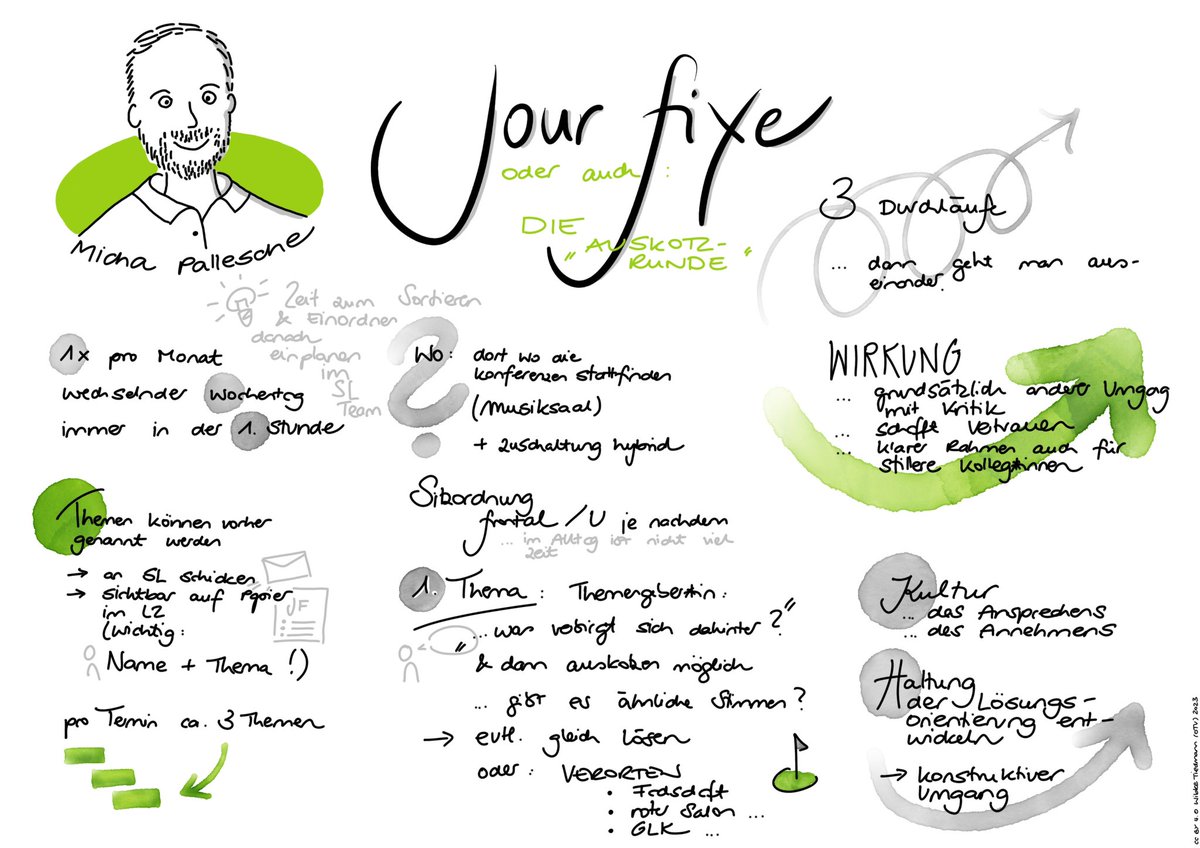 Micha Pallesche
Jour fixe
oder auch :
DIE
„AUSKOTZ-
RUNDE“
Zeit zum Sortieren
& Einordnen
danach
einplanen
im
SL
Team
1x pro Monat
wechselnder Wochentag
immer in der 1. Stunde
Wo: dort wo die
Konferenzen stattfinden
(Musiksaal)
+ Zuschaltung hybrid
3 Durchläufe
... dann geht man aus-
einander.
WIRKUNG
... grundsätzlich anderer Umgag
mit Kritik
... schafft Vertrauen
... klarer Rahmen auch für
stillere Kolleg*innen
Themen können vorher
genannt werden
→ an SL schicken
→ sichtbar auf Papier
im LZ
(wichtig:
Name + Thema !)
JF
pro Termin ca. 3 Themen
Sitzordnung
frontal / U je nachdem
... im Alltag ist nicht viel
Zeit
1. Thema : Themengeber*in:
„... was verbirgt sich dahinter?“
& dann auskotzen möglich
... gibt es ähnliche Stimmen?
→ evtl. gleich lösen
oder: VERORTEN
• Fachschaft
• roter Salon ...
• GLK ...
Kultur
... des Ansprechens
... des Annehmens
Haltung
der Lösungs-
orientierung ent-
wickeln
→ konstruktiver
Umgang
CC BY 4.0 Wibke Tiedmann (OTV) 2023